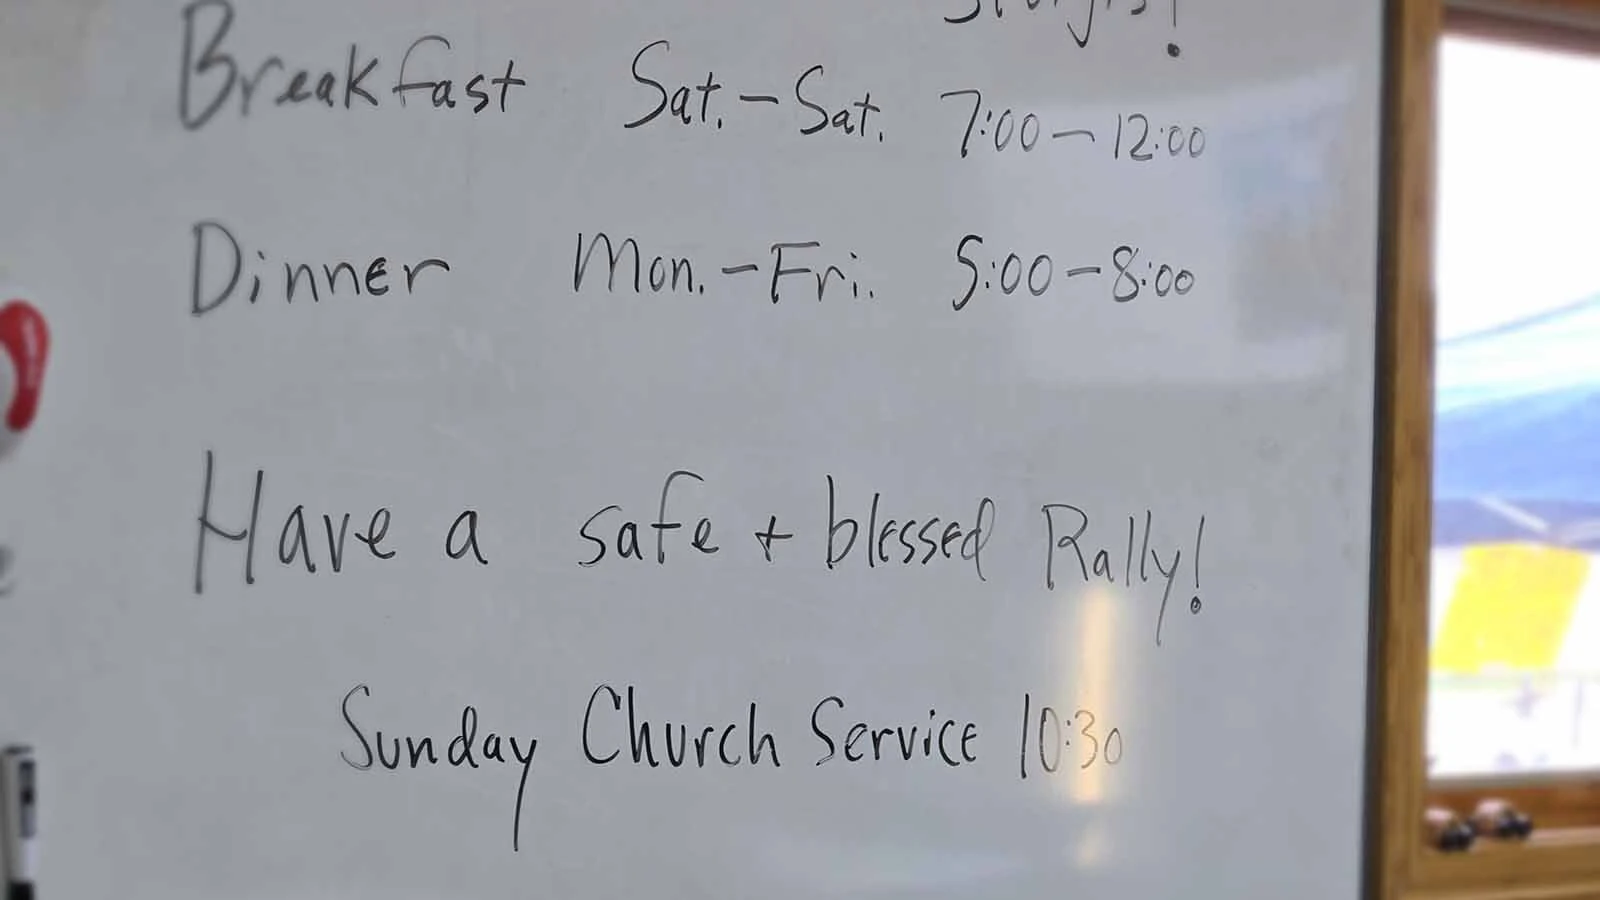 Breakfast Sat.-Sat. 7:00-12:00
Dinner Mon.-Fri. 5:00-8:00
Have a safe + blessed Rally!
Sunday Church Service 10:30